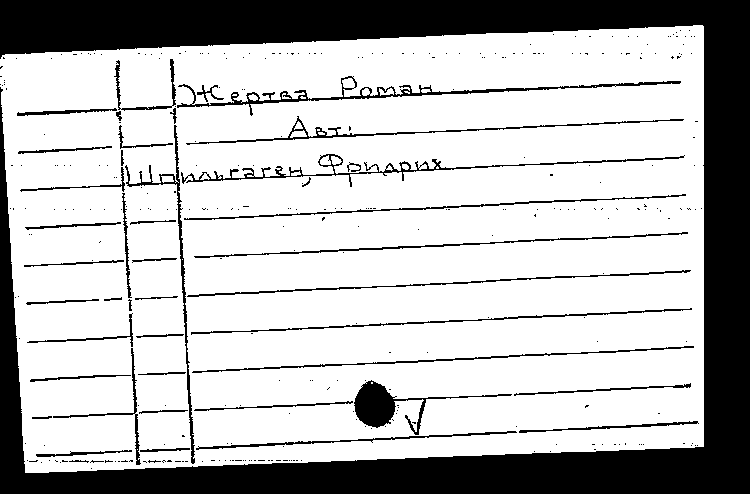 Жертва Роман
Авт:
Шпильгаген, Фридрих